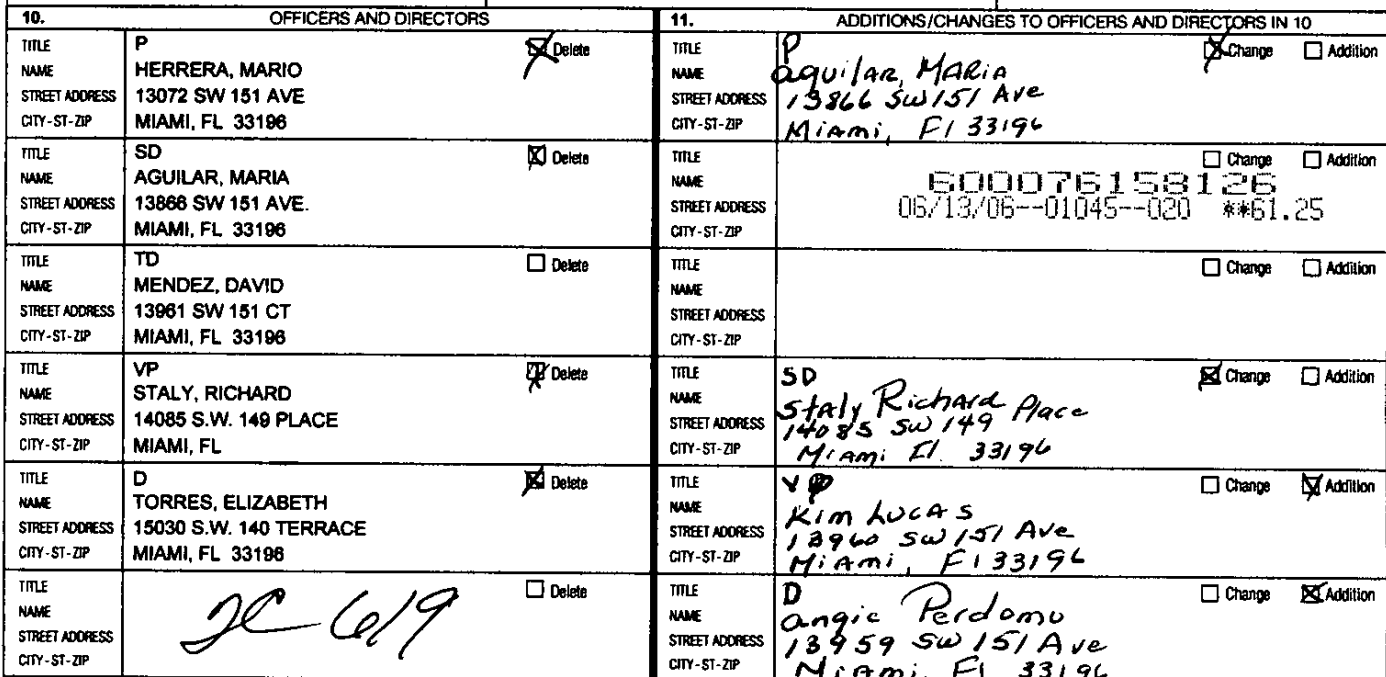 10. OFFICERS AND DIRECTORS
TITLE P Delete
NAME HERRERA, MARIO
STREET ADDRESS 13072 SW 151 AVE
CITY-ST-ZIP MIAMI, FL 33196
TITLE SD Delete
NAME AGUILAR, MARIA
STREET ADDRESS 13866 SW 151 AVE.
CITY-ST-ZIP MIAMI, FL 33196
TITLE TD Delete
NAME MENDEZ, DAVID
STREET ADDRESS 13961 SW 151 CT
CITY-ST-ZIP MIAMI, FL 33196
TITLE VP Delete
NAME STALY, RICHARD
STREET ADDRESS 14085 S.W. 149 PLACE
CITY-ST-ZIP MIAMI, FL
TITLE D Delete
NAME TORRES, ELIZABETH
STREET ADDRESS 15030 S.W. 140 TERRACE
CITY-ST-ZIP MIAMI, FL 33196
TITLE Delete
NAME
STREET ADDRESS
CITY-ST-ZIP
6/9
11. ADDITIONS/CHANGES TO OFFICERS AND DIRECTORS IN 10
TITLE P Change Addition
NAME aguilar, MARia
STREET ADDRESS 13866 SW 151 Ave
CITY-ST-ZIP Miami, Fl 33196
TITLE Change Addition
NAME 600076158126
STREET ADDRESS 06/13/06--01045--020 **61.25
CITY-ST-ZIP
TITLE Change Addition
NAME
STREET ADDRESS
CITY-ST-ZIP
TITLE SD Change Addition
NAME Staly Richard
STREET ADDRESS 14085 SW 149 Place
CITY-ST-ZIP Miami Fl. 33196
TITLE VP Change Addition
NAME Kim Lucas
STREET ADDRESS 13960 SW 151 Ave
CITY-ST-ZIP Miami, Fl 33196
TITLE D Change Addition
NAME angie Perdomo
STREET ADDRESS 13959 SW 151 Ave
CITY-ST-ZIP Miami, Fl 33196